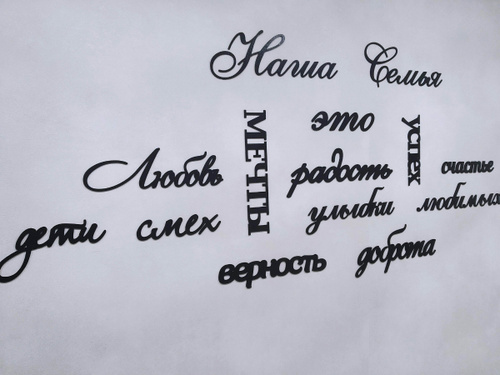 Наша Семья
это
МЕЧТЫ
успех
Любовь
радость
счастье
дети
смех
улыбки
любимых
верность
доброта